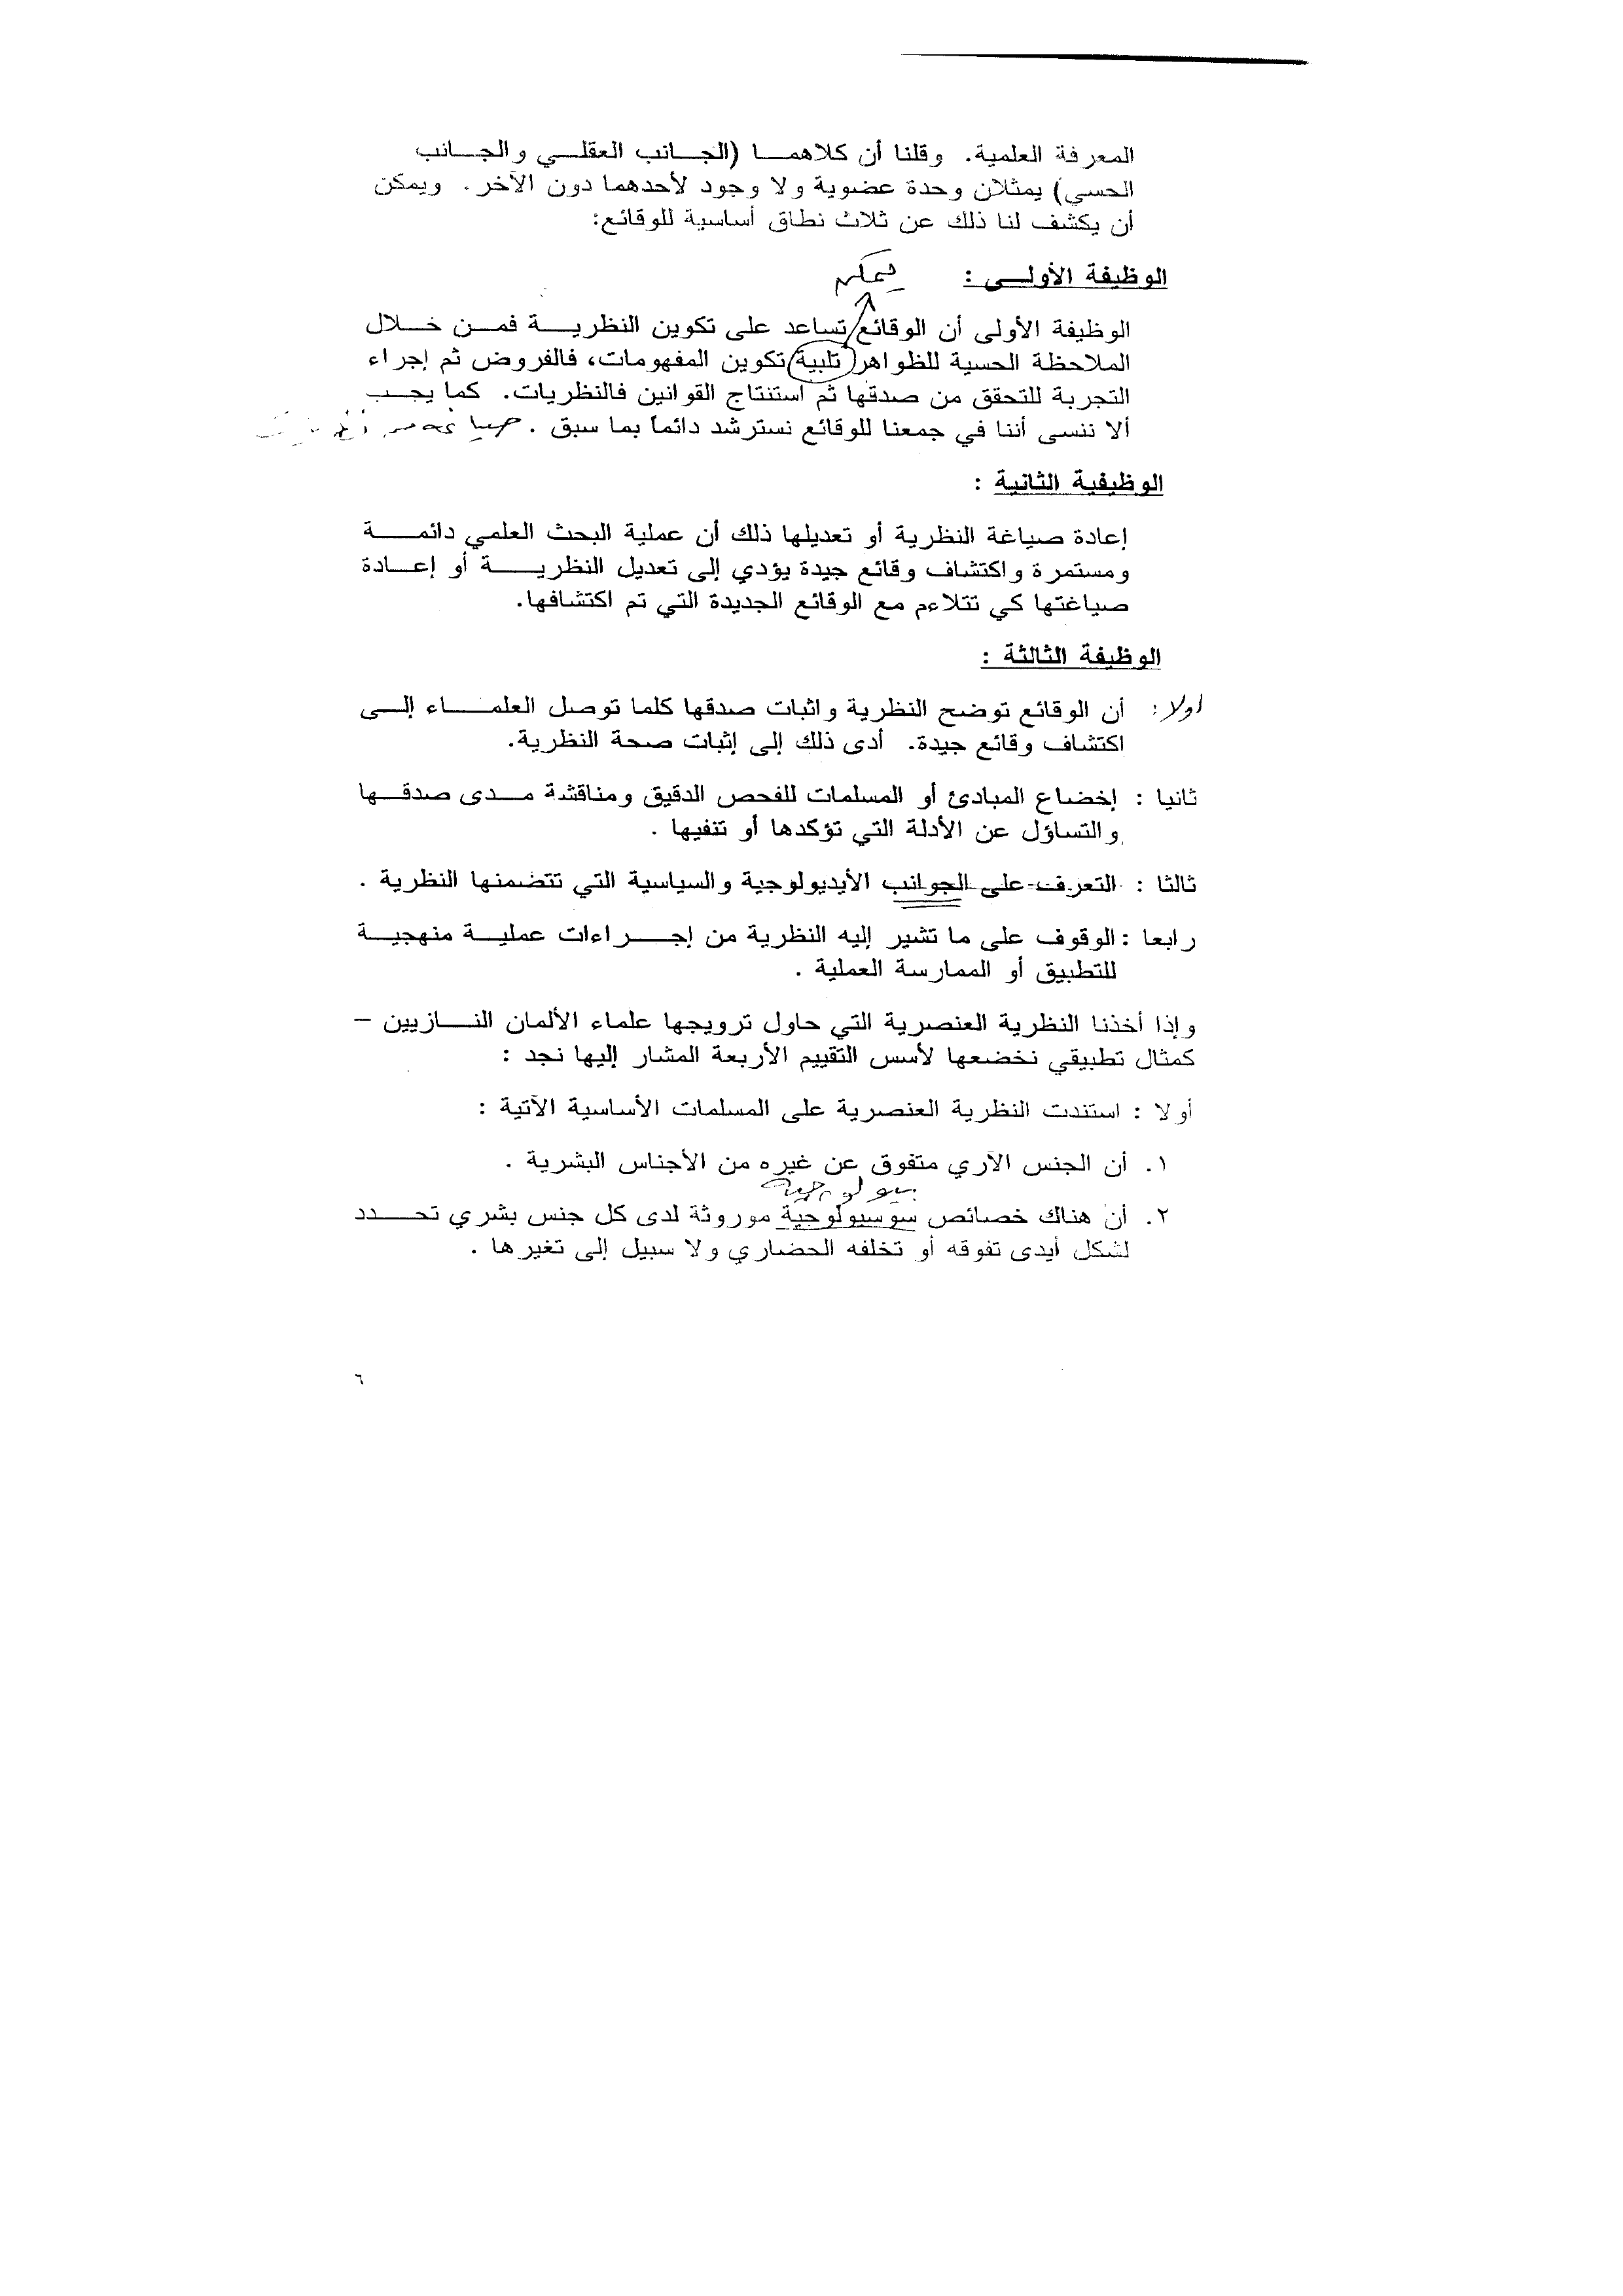 المعرفة العلمية. وقلنا أن كلاهما (الجانب العقلي والجانب
الحسي) يمثلان وحدة عضوية ولا وجود لأحدهما دون الآخر. ويمكن
أن يكشف لنا ذلك عن ثلاث نطاق أساسية للوقائع:
الوظيفة الأولى :
الوظيفة الأولى أن الوقائع تساعد على تكوين النظرية فمن خلال
الملاحظة الحسية للظواهر تلبية تكوين المفهومات، فالفروض ثم إجراء
التجربة للتحقق من صدقها ثم استنتاج القوانين فالنظريات. كما يجب
ألا ننسى أننا في جمعنا للوقائع نسترشد دائماً بما سبق .
الوظيفية الثانية :
إعادة صياغة النظرية أو تعديلها ذلك أن عملية البحث العلمي دائمة
ومستمرة واكتشاف وقائع جيدة يؤدي إلى تعديل النظرية أو إعادة
صياغتها كي تتلاءم مع الوقائع الجديدة التي تم اكتشافها.
الوظيفة الثالثة :
اولا: أن الوقائع توضح النظرية واثبات صدقها كلما توصل العلماء إلى
اكتشاف وقائع جيدة. أدى ذلك إلى إثبات صحة النظرية.
ثانيا : إخضاع المبادئ أو المسلمات للفحص الدقيق ومناقشة مدى صدقها
والتساؤل عن الأدلة التي تؤكدها أو تنفيها .
ثالثا : التعرف على الجوانب الأيديولوجية والسياسية التي تتضمنها النظرية .
رابعا : الوقوف على ما تشير إليه النظرية من إجراءات عملية منهجية
للتطبيق أو الممارسة العملية .
وإذا أخذنا النظرية العنصرية التي حاول ترويجها علماء الألمان النازيين –
كمثال تطبيقي نخضعها لأسس التقييم الأربعة المشار إليها نجد :
أولا : استندت النظرية العنصرية على المسلمات الأساسية الآتية :
١. أن الجنس الآري متفوق عن غيره من الأجناس البشرية .
بيولوجية
٢. أن هناك خصائص سوسيولوجية موروثة لدى كل جنس بشري تحدد
لشكل أيدى تفوقه أو تخلفه الحضاري ولا سبيل إلى تغيرها .
٦